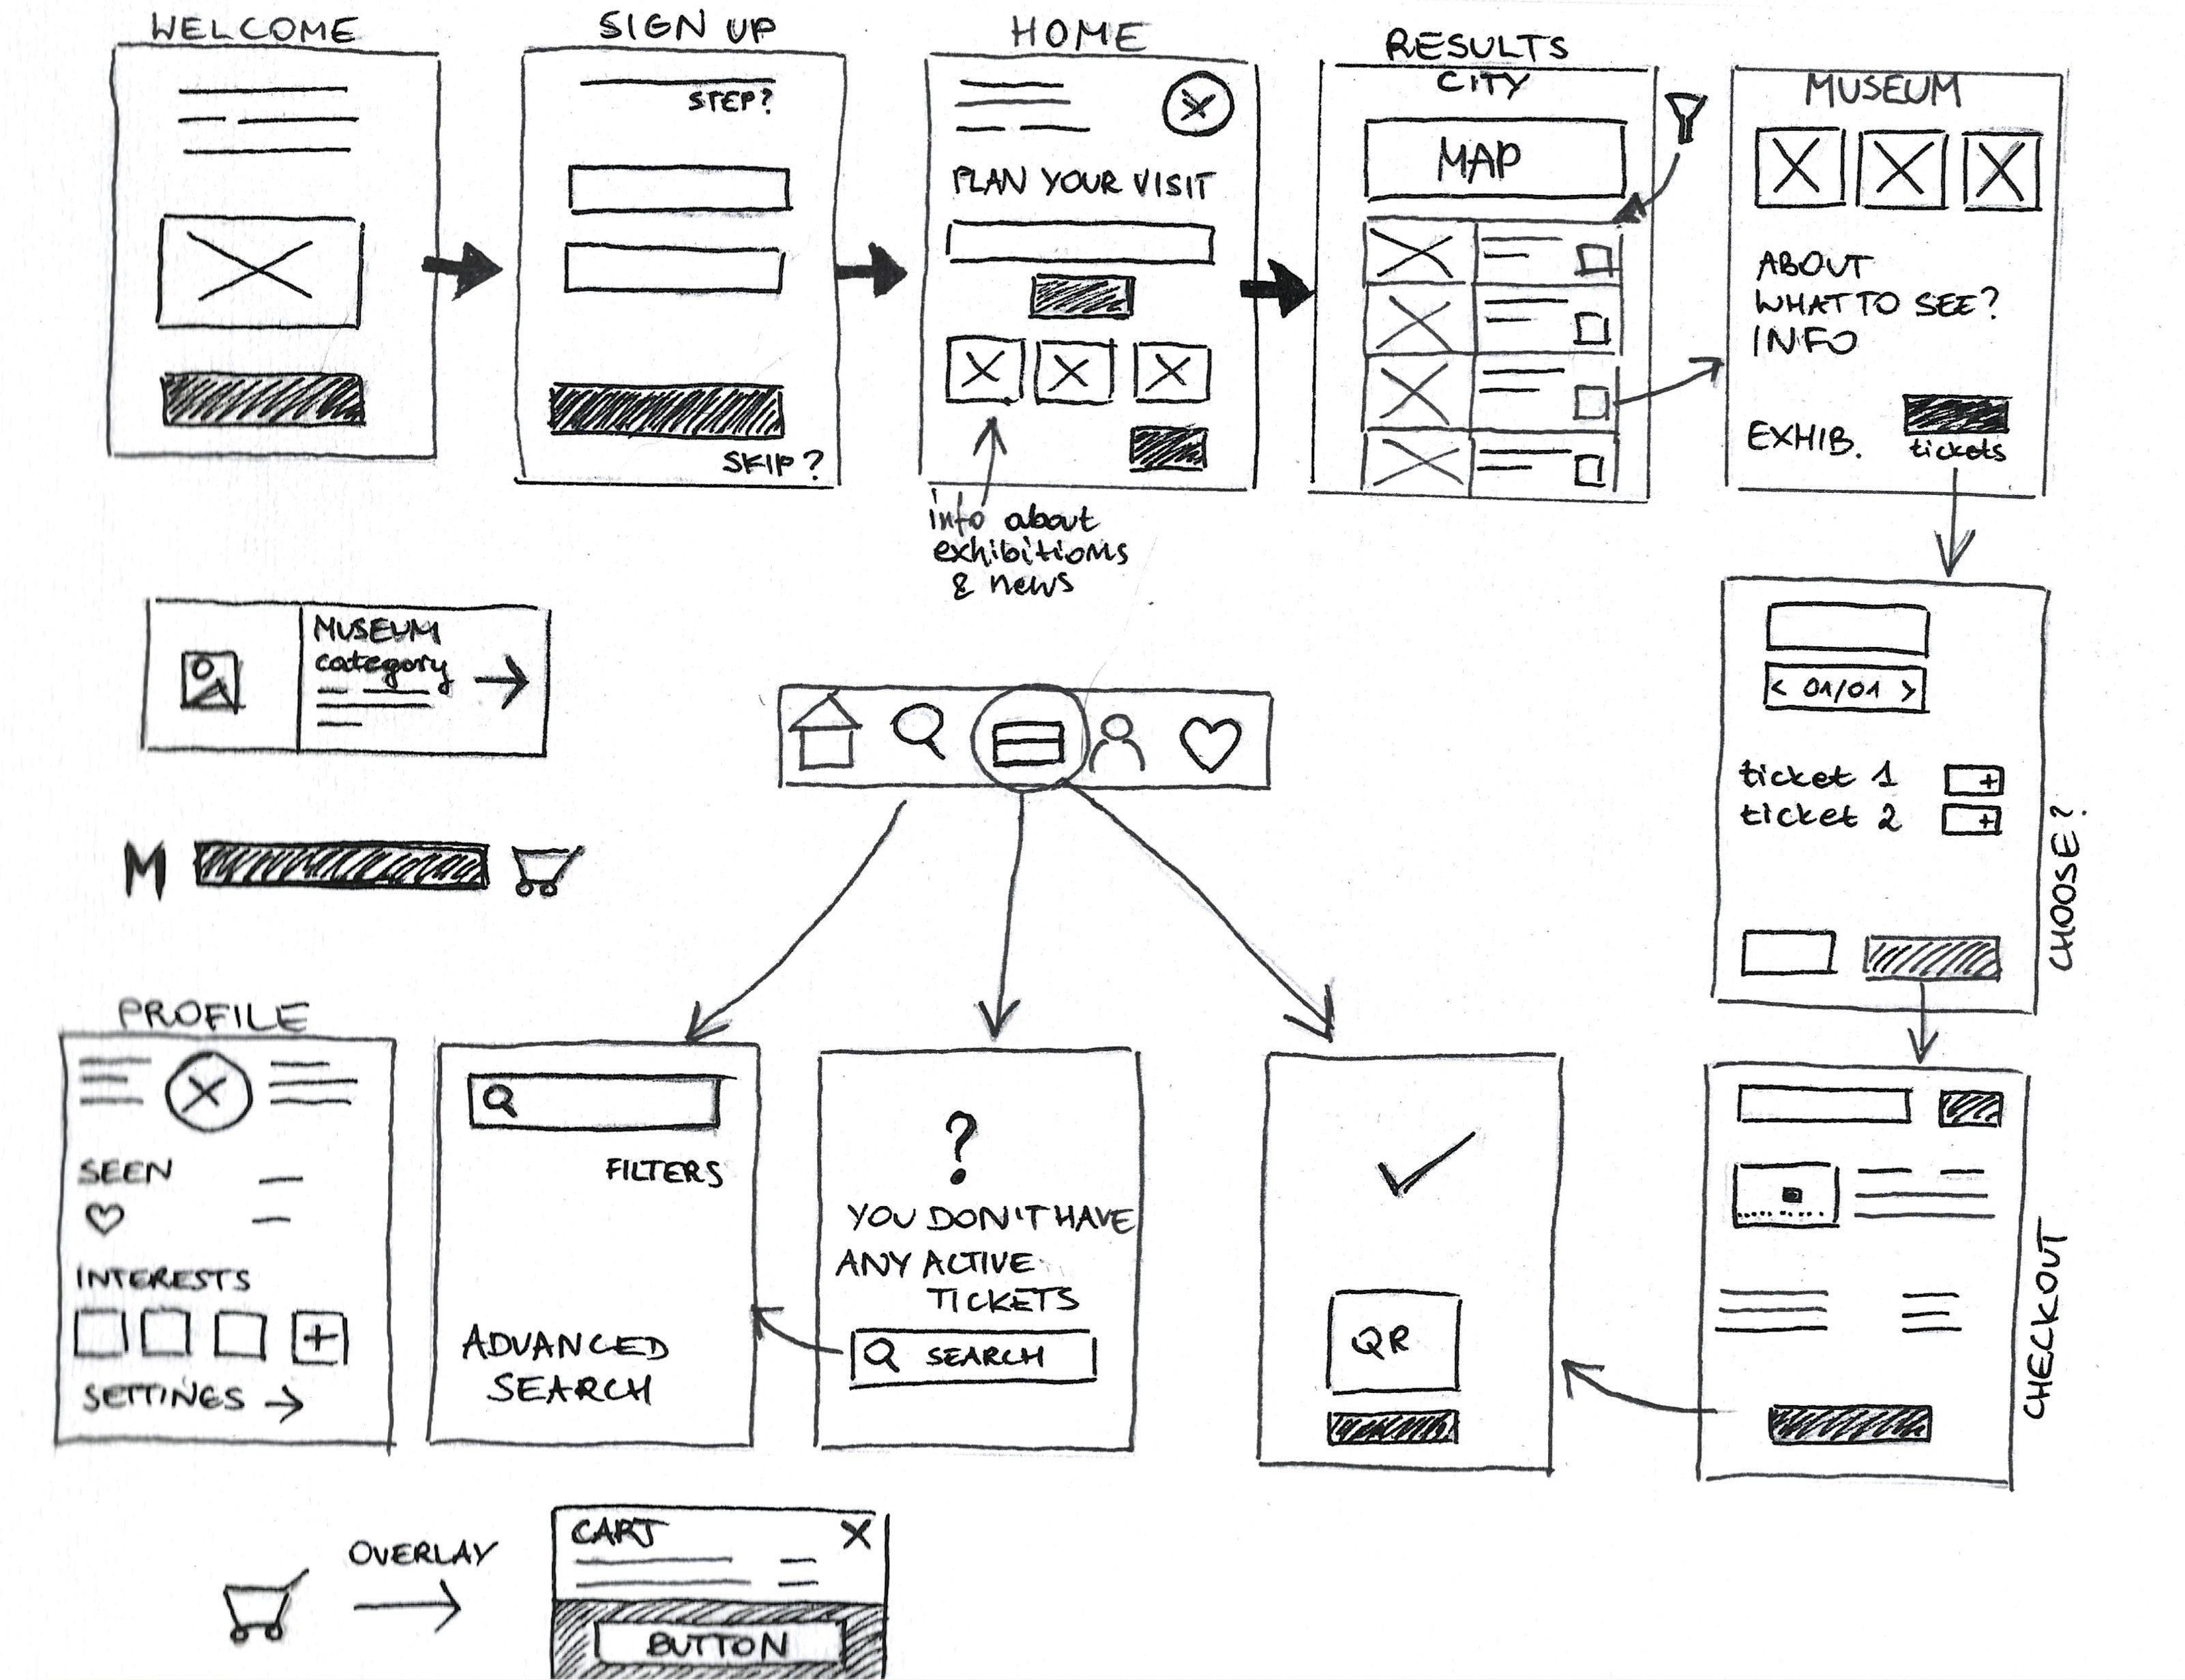 WELCOME
SIGN UP
STEP?
SKIP?
HOME
PLAN YOUR VISIT
info about
exhibitions
& news
RESULTS
CITY
MAP
MUSEUM
ABOUT
WHAT TO SEE?
INFO
EXHIB.
tickets
MUSEUM
category
< 01/01 >
ticket 1 +
ticket 2 +
CHOOSE?
M
PROFILE
SEEN
INTERESTS
+
SETTINGS →
FILTERS
ADVANCED
SEARCH
?
YOU DON'T HAVE
ANY ACTIVE
TICKETS
SEARCH
QR
CHECKOUT
OVERLAY
CART X
BUTTON